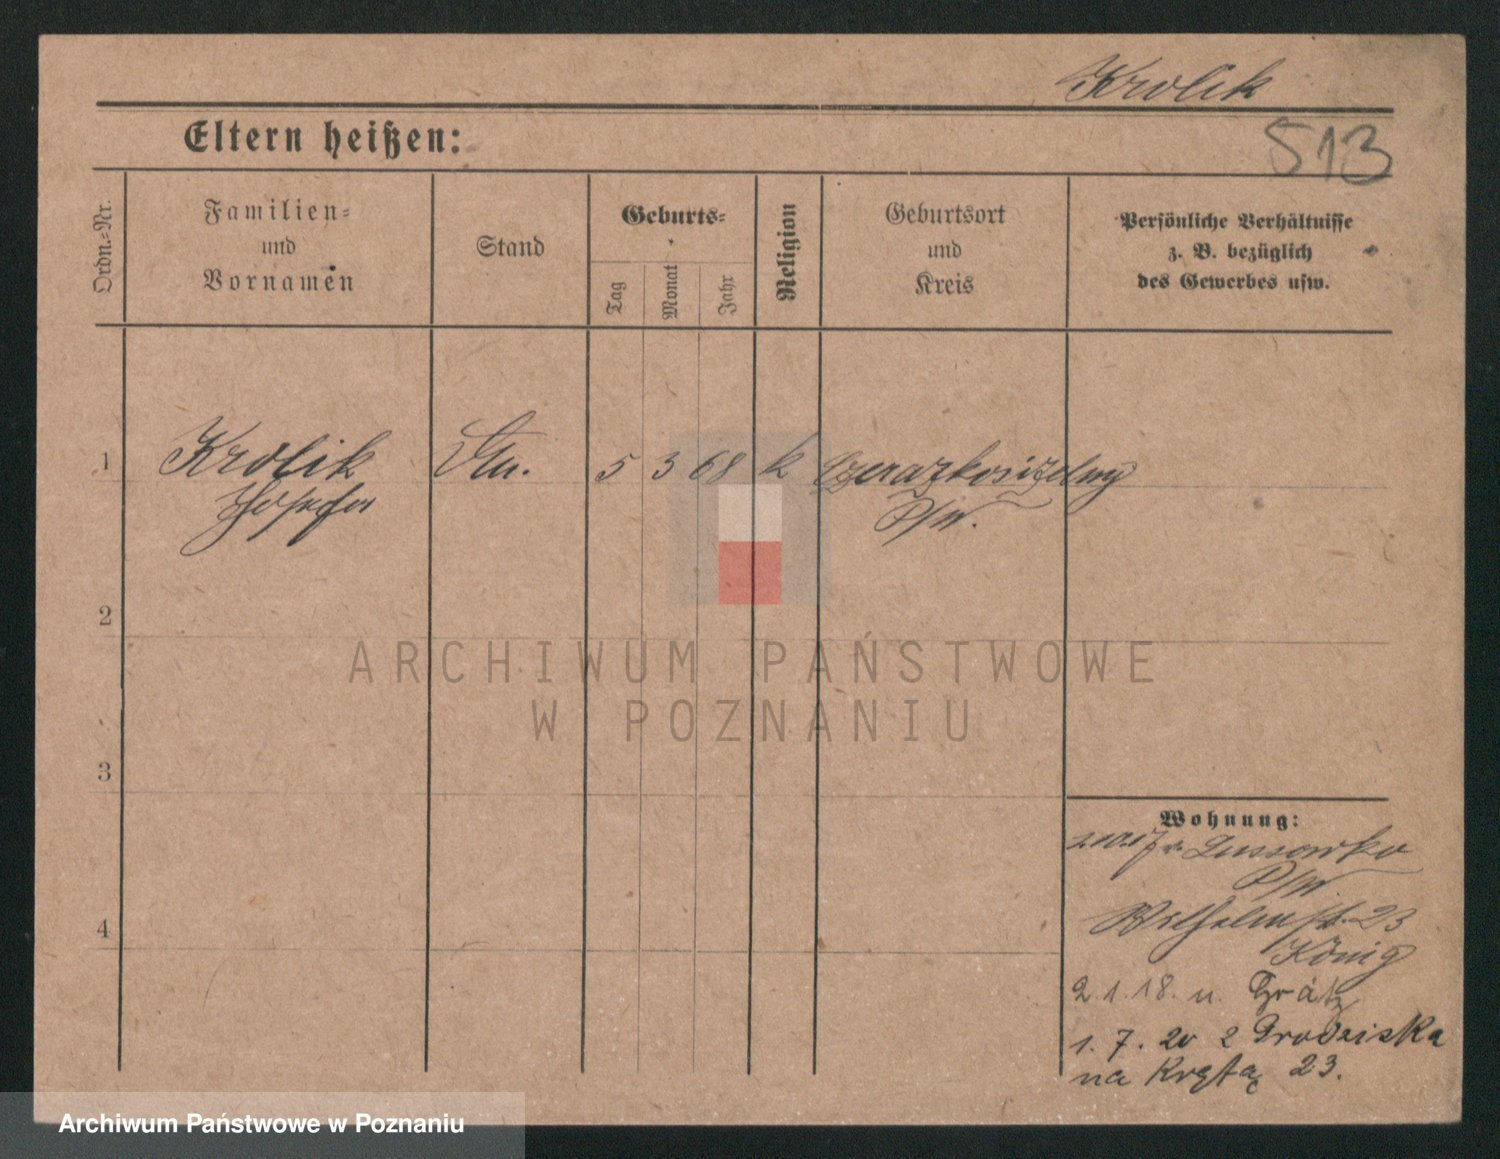 Krolik
Eltern heißen:
513
Ordn.-Nr.
Familien-
und
Vornamen
Stand
Geburts-
Tag
Monat
Jahr
Religion
Geburtsort
und
Kreis
Persönliche Verhältnisse
z. B. bezüglich
des Gewerbes usw.
1
Krolik
Josefa
5 3 68 k
P/W.
2
3
4
ARCHIWUM PAŃSTWOWE
W POZNANIU
Wohnung:
Lussowko
P/W.
Wilhelmstr. 23
König
2.1.18. n. Grätz
1. 7. 20 z Grodziska
na Krętą 23.
Archiwum Państwowe w Poznaniu